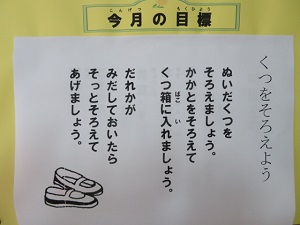 今月の目標
くつをそろえよう
ぬいだくつを
そろえましょう。
かかとをそろえて
くつ箱に入れましょう。
だれかが
みだしておいたら
そっとそろえて
あげましょう。